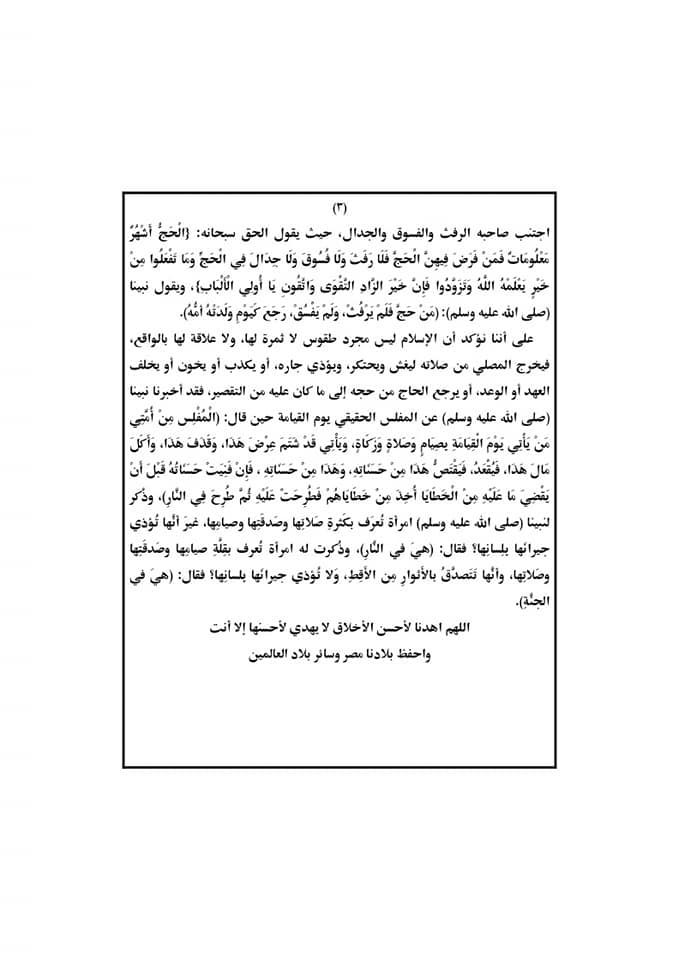 (٣)
اجتنب صاحبه الرفث والفسوق والجدال، حيث يقول الحق سبحانه: {الْحَجُّ أَشْهُرٌ
مَعْلُومَاتٌ فَمَنْ فَرَضَ فِيهِنَّ الْحَجَّ فَلَا رَفَثَ وَلَا فُسُوقَ وَلَا جِدَالَ فِي الْحَجِّ وَمَا تَفْعَلُوا مِنْ
خَيْرٍ يَعْلَمْهُ اللَّهُ وَتَزَوَّدُوا فَإِنَّ خَيْرَ الزَّادِ التَّقْوَى وَاتَّقُونِ يَا أُولِي الْأَلْبَابِ}، ويقول نبينا
(صلى الله عليه وسلم): (مَنْ حَجَّ فَلَمْ يَرْفُثْ، وَلَمْ يَفْسُقْ، رَجَعَ كَيَوْمِ وَلَدَتْهُ أُمُّهُ).
على أننا نؤكد أن الإسلام ليس مجرد طقوس لا ثمرة لها، ولا علاقة لها بالواقع،
فيخرج المصلي من صلاته ليغش ويحتكر، ويؤذي جاره، أو يكذب أو يخون أو يخلف
العهد أو الوعد، أو يرجع الحاج من حجه إلى ما كان عليه من التقصير، فقد أخبرنا نبينا
(صلى الله عليه وسلم) عن المفلس الحقيقي يوم القيامة حين قال: (الْمُفْلِس مِنْ أُمَّتِي
مَنْ يَأْتِي يَوْمَ الْقِيَامَةِ بِصِيَامٍ وَصَلَاةٍ وَزَكَاةٍ، وَيَأْتِي قَدْ شَتَمَ عِرْضَ هَذَا، وَقَذَفَ هَذَا، وَأَكَلَ
مَالَ هَذَا، فَيُقْعَدُ، فَيَقْتَصُّ هَذَا مِنْ حَسَنَاتِهِ، وَهَذَا مِنْ حَسَنَاتِهِ ، فَإِنْ فَنِيَتْ حَسَنَاتُهُ قَبْلَ أَنْ
يَقْضِيَ مَا عَلَيْهِ مِنْ الْخَطَايَا أُخِذَ مِنْ خَطَايَاهُمْ فَطُرِحَتْ عَلَيْهِ ثُمَّ طُرِحَ فِي النَّارِ)، وذُكر
لنبينا (صلى الله عليه وسلم) امرأة تُعرَف بكَثرةِ صَلاتِها وصَدقَتِها وصيامِها، غيرَ أنَّها تُؤذي
جيرانَها بلسانِها؟ فقال: (هيَ في النَّارِ)، وذُكرت له امرأة تُعرف بقِلَّةِ صيامِها وصَدقَتِها
وصَلاتِها، وأنَّها تَتَصدَّقُ بالأَثوارِ مِن الأَقِطِ، وَلا تُؤذي جيرانَها بلسانِها؟ فقال: (هيَ في
الجنَّةِ).
اللهم اهدنا لأحسن الأخلاق لا يهدي لأحسنها إلا أنت
واحفظ بلادنا مصر وسائر بلاد العالمين